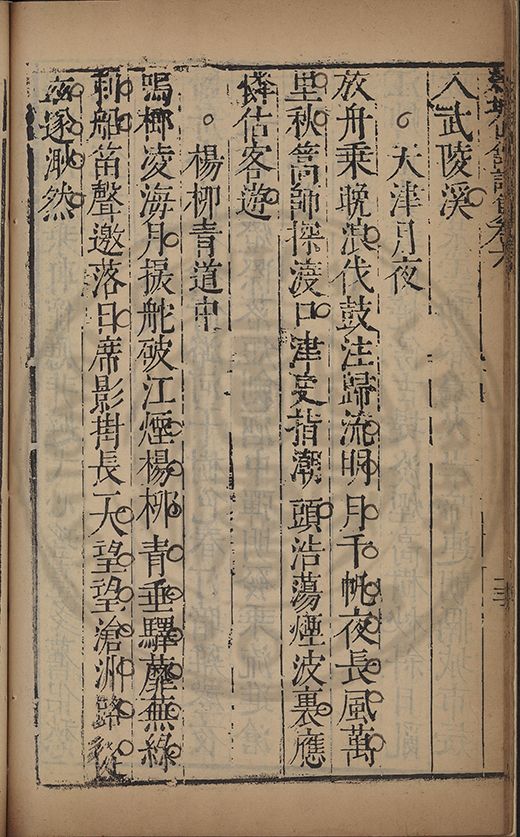 入武陵溪
天津月夜
放舟乘晚浪伐鼓注歸流明月千帆夜長風萬
里秋篙師探渡口津吏指潮頭浩蕩煙波裏應
憐估客遊
楊柳青道中
鳴榔凌海月捩舵破江煙楊柳青垂驛蘼蕪綠
到船笛聲邀落日席影掛長天望望滄洲路從
茲遂渺然